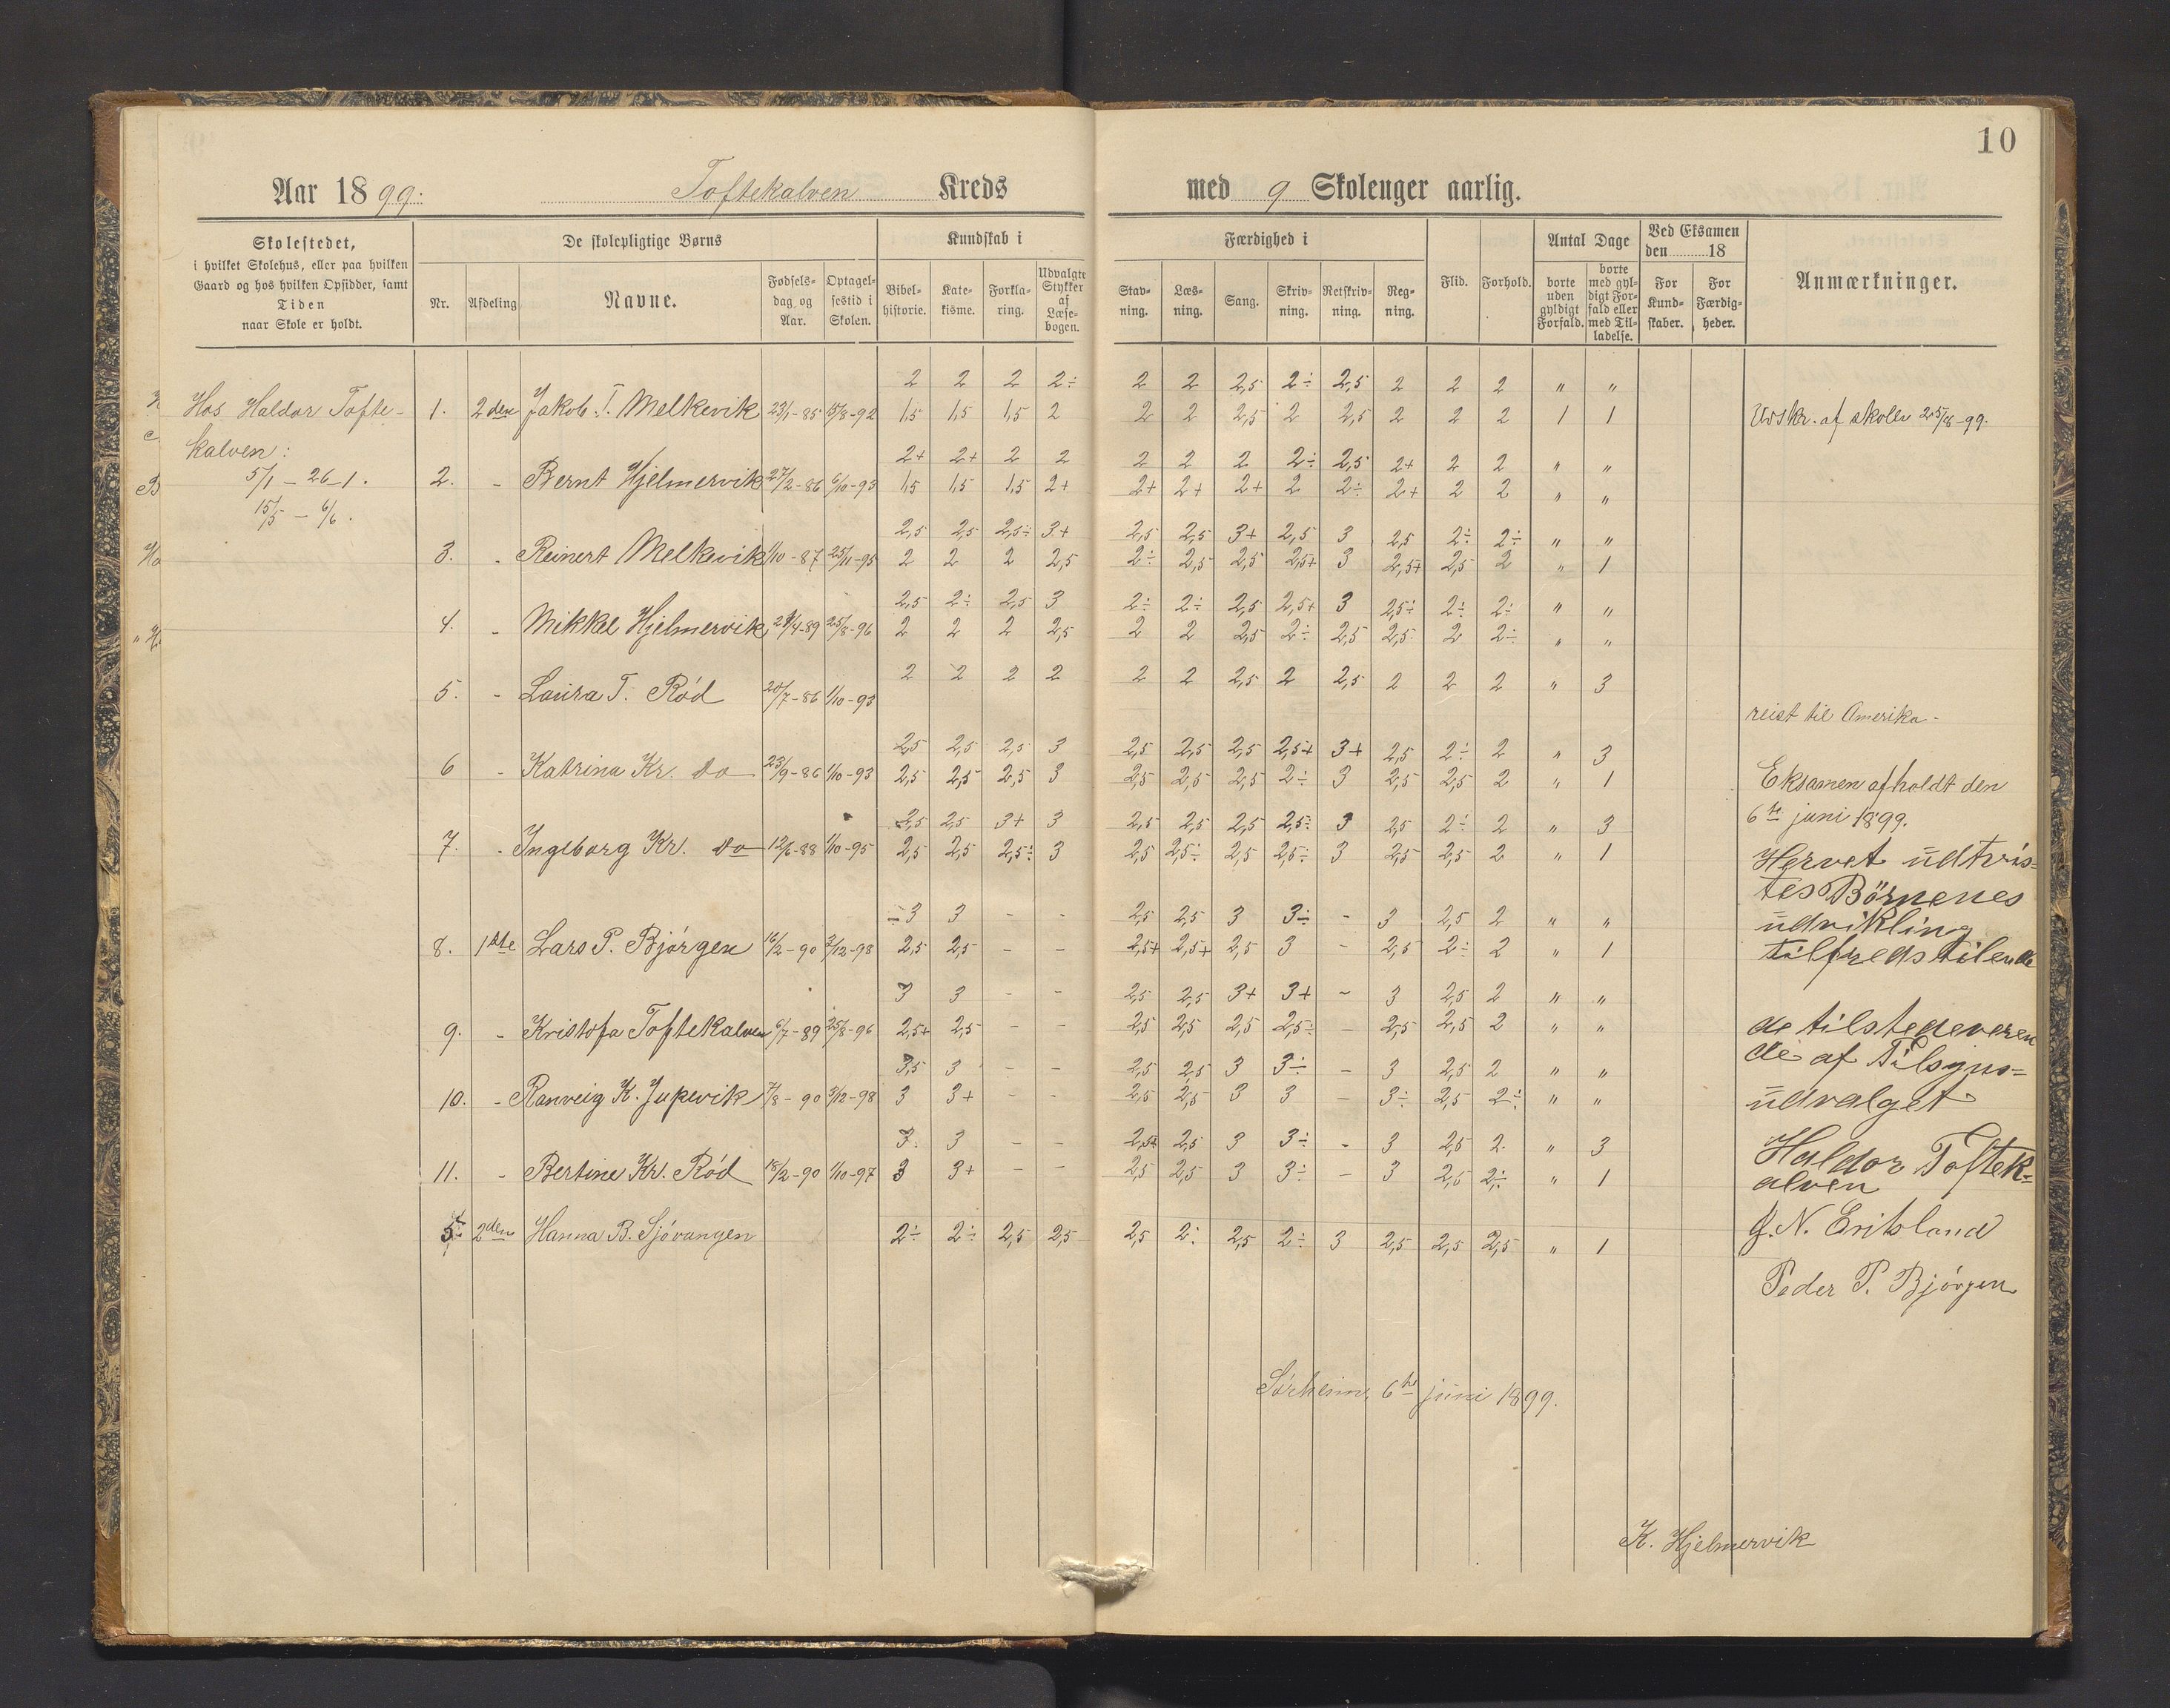 10
Aar 1899. Toftekalven Kreds med 9 Skolenger aarlig.
Skolestedet, i hvilket Skolehus, eller paa hvilken Gaard og hos hvilken Opsidder, samt Tiden naar Skole er holdt.
De skolepligtige Børns
Nr. Afdeling Navne. Fødselsdag og Aar. Optagelsestid i Skolen.
Kundskab i
Bibelhistorie. Katekisme. Forklaring. Udvalgte Stykker af Læsebogen.
Færdighed i
Stavning. Læsning. Sang. Skrivning. Retskrivning. Regning.
Flid. Forhold.
Antal Dage
borte uden gyldigt Forfald. borte med gyldigt Forfald eller med Tilladelse.
Ved Eksamen den 18
For Kundskaber. For Færdigheder.
Anmærkninger.
Hos Haldor Tofte-
kalven:
5/1 – 26–1.
15/5 – 6/6.
2 2 2 2÷ 2 2 2,5 2÷ 2,5 2 2 2 " "
1. 2den Jakob T. Melkevik 23/1-85 15/8-92 1,5 1,5 1,5 2 2 2 2,5 2 2,5 2 2 2 1 1 Udskr. af skolen 25/8-99.
2+ 2+ 2 2 2 2 2 2÷ 2,5 2+ 2 2 " "
2. - Bernt Hjelmervik 27/2-86 6/10-93 1,5 1,5 1,5 2+ 2+ 2+ 2+ 2 2÷ 2+ 2 2 " "
2,5 2,5 2,5÷ 3+ 2,5 2,5 3+ 2,5 3 2,5 2÷ 2÷ " "
3. - Reinert Melkevik 1/10-87 25/11-95 2 2 2 2,5 2÷ 2,5 2,5 2,5+ 3 2,5+ 2,5 2 " 1
2,5 2÷ 2,5 3 2÷ 2÷ 2,5 2,5+ 3 2,5÷ 2÷ 2÷ " "
4. - Mikkel Hjelmervik /4-89 25/8-96 2 2 2 2,5 2 2 2,5 2÷ 2,5 2,5 2 2÷ " "
2 2 2 2 2 2 2,5 2 2,5 2 2 2 " 3
5. - Laura T. Rød 20/7-86 1/10-93
reist til Amerika -
2,5 2,5 2,5 3 2,5 2,5 2,5 2,5+ 3+ 2,5 2÷ 2 " 3
6 - Katrina Kr. do 23/9-86 1/10-93 2,5 2,5 2,5 3 2,5 2,5 2,5 2÷ 3 2,5 2,5 2 " 1
Eksamen afholdt den
6te juni 1899.
2,5 2,5 3+ 3 2,5 2,5 2,5 2,5÷ 3 2,5 2÷ 2 " 3
7. - Ingeborg Kr. do 12/6-88 1/10-95 2,5 2,5 2,5÷ 3 2,5 2,5÷ 2,5 2,5÷ 3 2,5 2,5 2 " 1
÷3 3 - - 2,5 2,5 3 3÷ - 3 2,5 2 " "
8. 1ste Lars P. Bjørgen 16/2-90 3/12-98 2,5 2,5 - - 2,5+ 2,5+ 2,5 3 - 2,5 2÷ 2 " 1
Børnenes
udvikling
tilfredstilende
3 3 - - 2,5 2,5 3+ 3+ - 3 2,5 2 " "
9. - Kristofa Toftekalven 6/7-89 25/8-96 2,5+ 2,5 - - 2,5 2,5 2,5 2,5÷ - 2,5 2,5 2 " "
de tilstedeveren
de af Tilsyns=
udvalget
3,5 3 - - 2,5 2,5 3 3÷ - 3 2,5 2 " "
10. - Ranveig K. Jupevik 7/8-90 3/12-98 3 3+ - - 2,5 2,5 3 3 - 3÷ 2,5 2÷ " "
3. 3 - - 2,5+ 2,5 3 3÷ - 3 2,5 2. " 3
11. - Bertine Kr. Rød 18/2-90 1/10-97 3 3+ - - 2,5 2,5 3 3÷ - 3 2,5 2÷ " 1
Haldor Toftek=
alven
5. 2den Hanna B. Sjøvangen 2÷ 2÷ 2,5 2,5 2,5 2÷ 2,5 2÷ 3 2,5 2,5 2,5 " 1
Peder P. Bjørgen
Sørheim, 6te juni 1899.
K. Hjelmervik